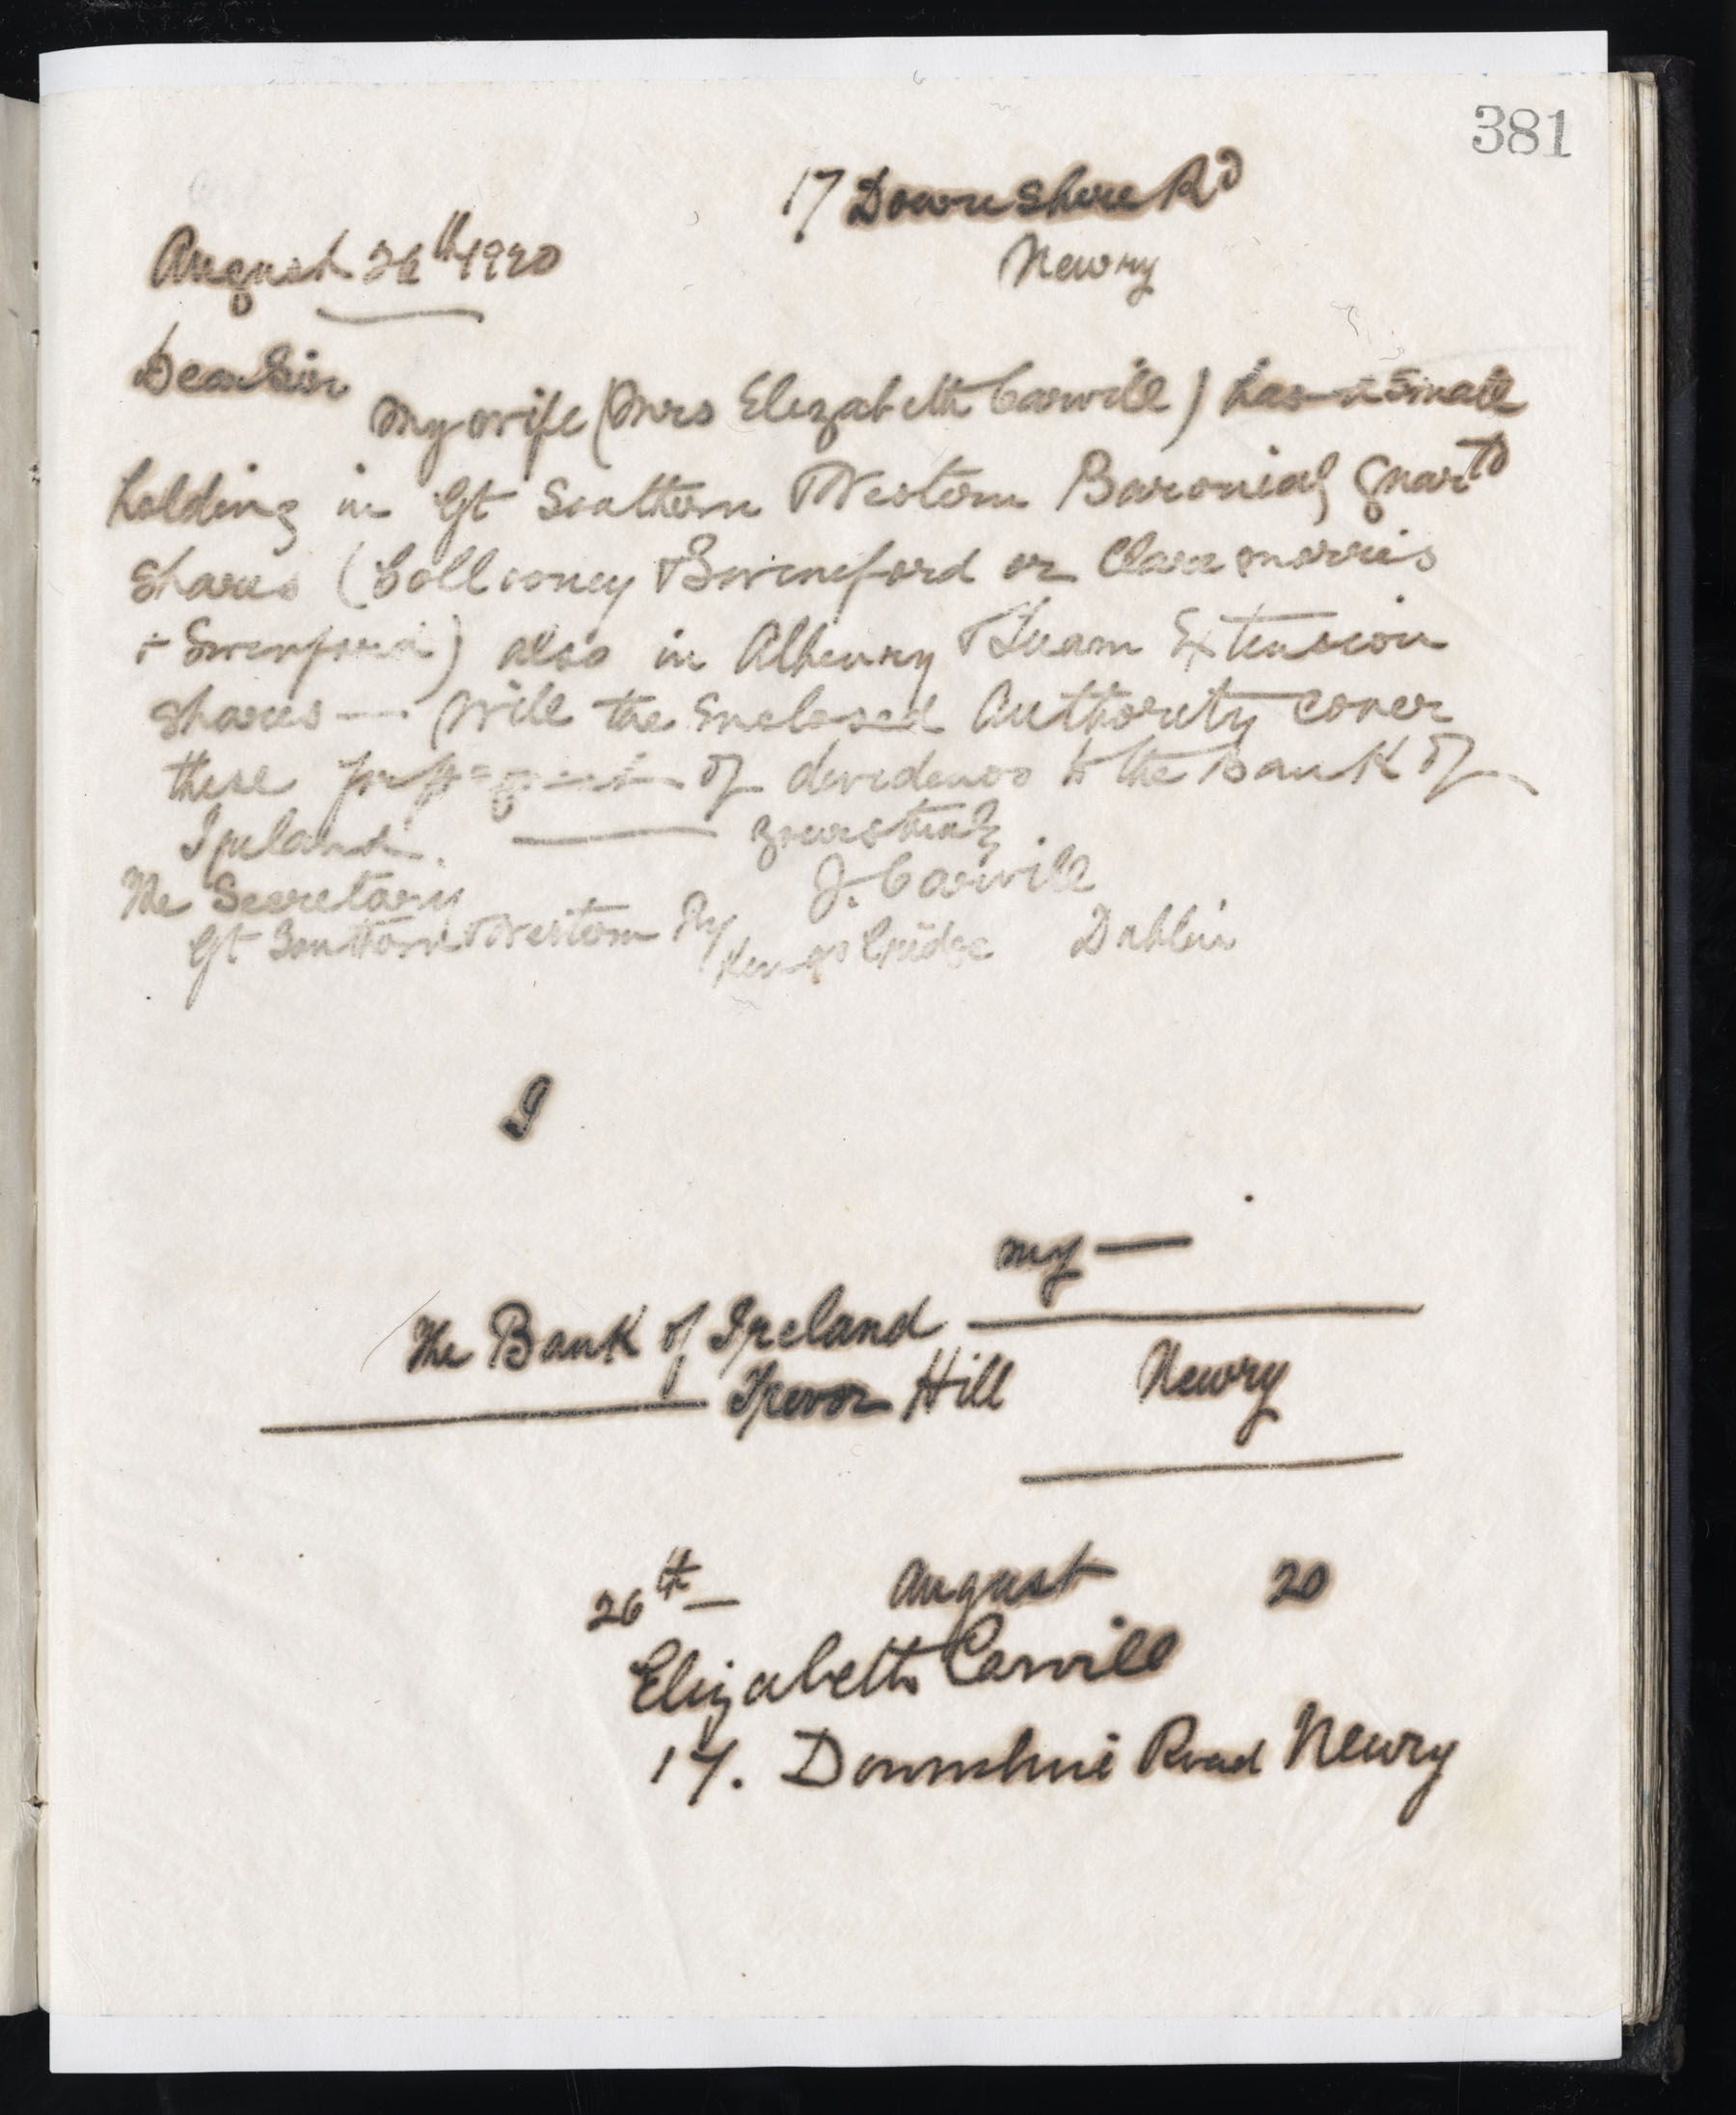 381
17 Downshire Rd
August 26th 1920
Newry
Dear Sir
My wife (Mrs Elizabeth Carvill) has a small
holding in Gt Southern & Western Baronial Guartd
shares (Collooney & Swineford or Claremorris
+ Swinford) also in Athenry & Tuam Extension
shares — Will the Enclosed Authority cover
these of dividends to the Bank of
Ireland. Yours truly
The Secretary J. Carvill
Gt Southern & Western Ry Kingsbridge Dublin
I
my —
The Bank of Ireland
Trevor Hill Newry
26th — August 20
Elizabeth Carvill
17. Downshire Road Newry